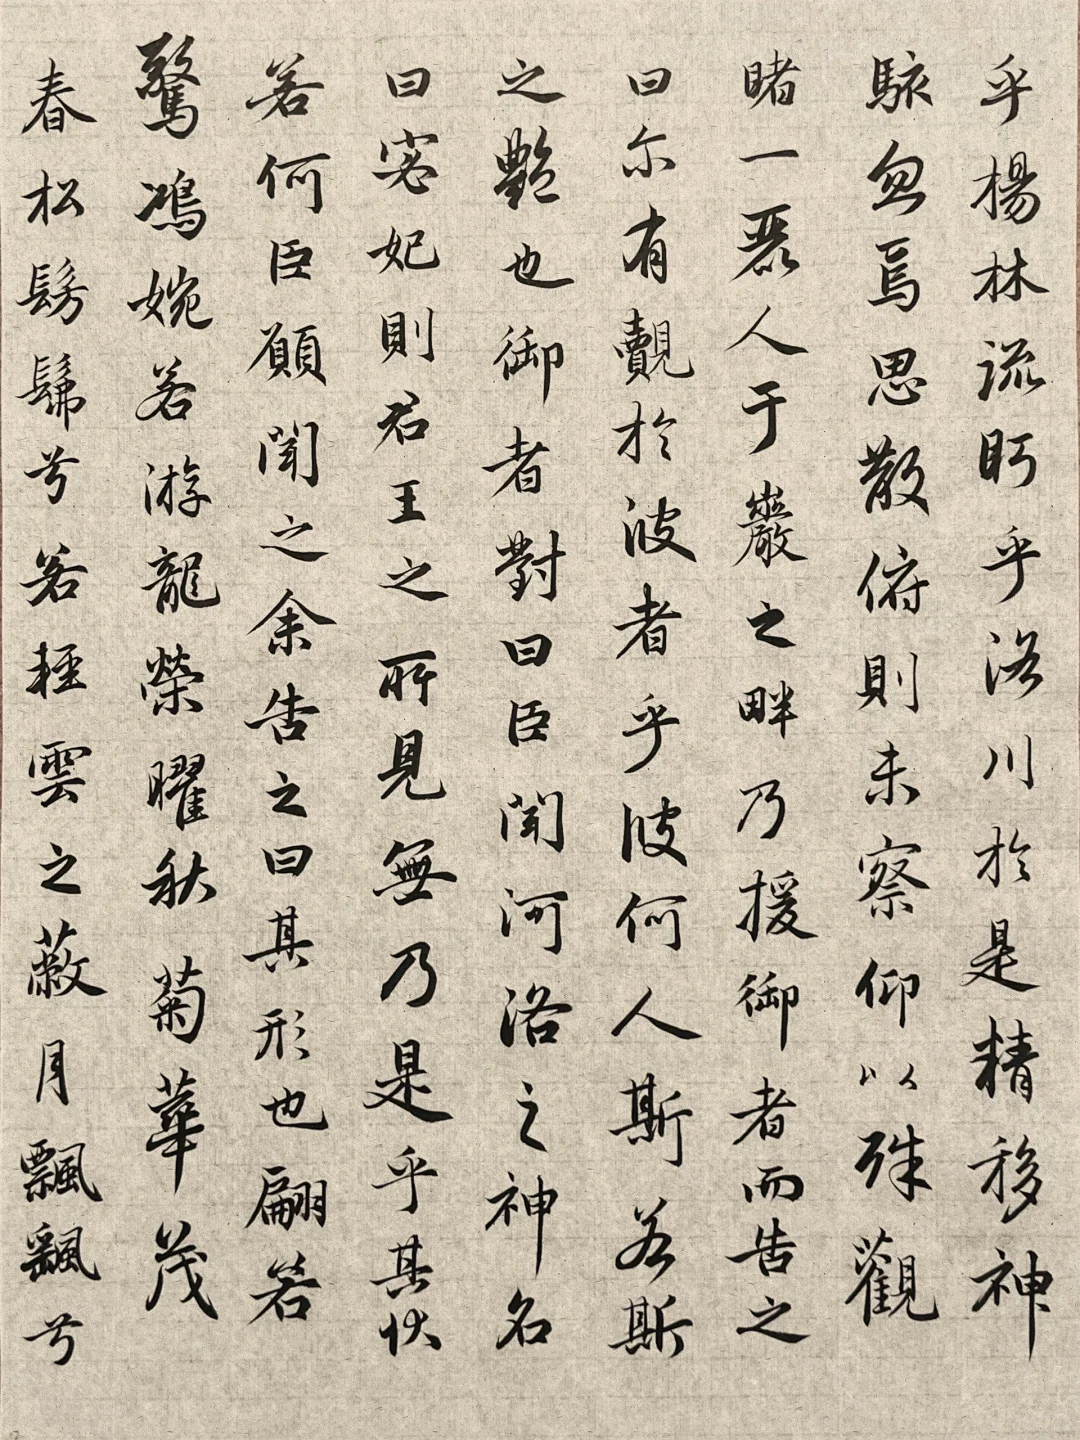 乎楊林流眄乎洛川於是精移神
駭忽焉思散俯則未察仰以殊觀
睹一麗人于巖之畔乃援御者而告之
曰尔有覿於彼者乎彼何人斯若斯
之艷也御者對曰臣聞河洛之神名
曰宓妃則君王之所見無乃是乎其狀
若何臣願聞之余告之曰其形也翩若
驚鴻婉若游龍榮曜秋菊華茂
春松髣髴兮若輕雲之蔽月飄飖兮